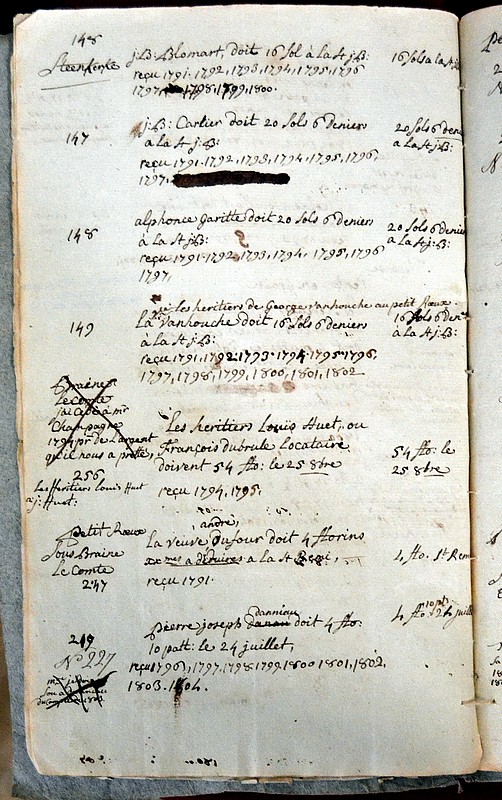 148
Steenkerke
J:B: Blomart, doit 16 sol à la St J:B:
16 sols a la St J:B
reçu 1791, 1792, 1793, 1794, 1795, 1796
1797, 1798, 1799, 1800.
147
J:B: Cartier doit 20 sols 6 deniers
20 sols 6 deni
à la St J:B:
à la St J:B:
reçu 1791, 1792, 1793, 1794, 1795, 1796,
1797.
148
alphonce garitte doit 20 sols 6 deniers
20 sols 6 denier
à la St J:B:
a la St J:B:
reçu 1791, 1792, 1793, 1794, 1795, 1796
1797,
les heritiers de George vanhouche au petit Rœux
149
La vanhouche doit 16 sols 6 deniers
16 sols 6 den
à la St J:B:
à la St J:B:
reçu 1791, 1792, 1793, 1794, 1795, 1796,
1797, 1798, 1799, 1800, 1801, 1802
Braine
Le Comte
j'ai cédé à mr
Champagne
1794 pr de l'argent
qu'il nous a preté,
256
Les heritiers Louis Huet
Les heritiers Louis Huet, ou
François dubrule Locataire
doivent 54 flo: le 25 8bre
54 flo: le
25 8bre
reçu 1794, 1795.
andré,
petit Rœux
sous Braine
Le Comte
247
La veuve Dufour doit 4 florins
a déduires a la St Remi,
4 flo. St Rem
reçu 1791.
danniau
219
No 227
pierre joseph doit 4 flo:
10 patt: le 24 juillet,
4 flo 10 pt: 24 juill
reçu 1796, 1797, 1798, 1799, 1800, 1801, 1802,
1803. 1804.